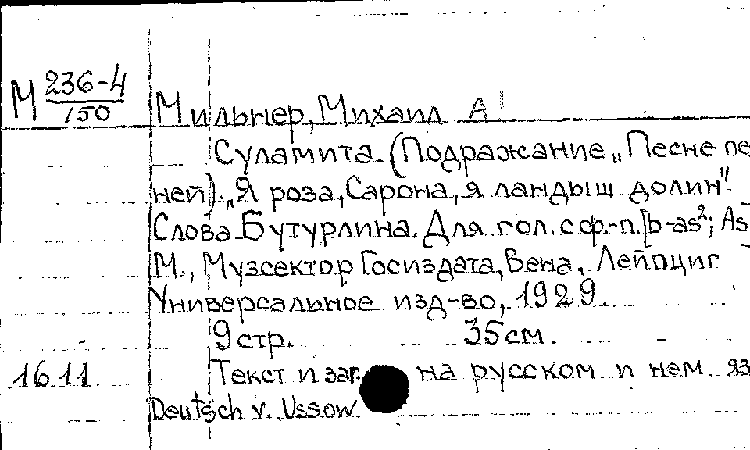 М 236-4/150 Мильнер, Михаил А
Суламита. (Подражание „Песне пе
ней). „Я роза, Сарона, я ландыш долин".
Слова Бутурлина. Для гол. с ф.-п. [b-as²; As
М., Музсектор Госиздата, Вена, Лейпциг
Универсальное изд-во, 1929.
9 стр. 35 см.
16.11 Текст и заг. на русском и нем. яз
Deutsch v. Ussow